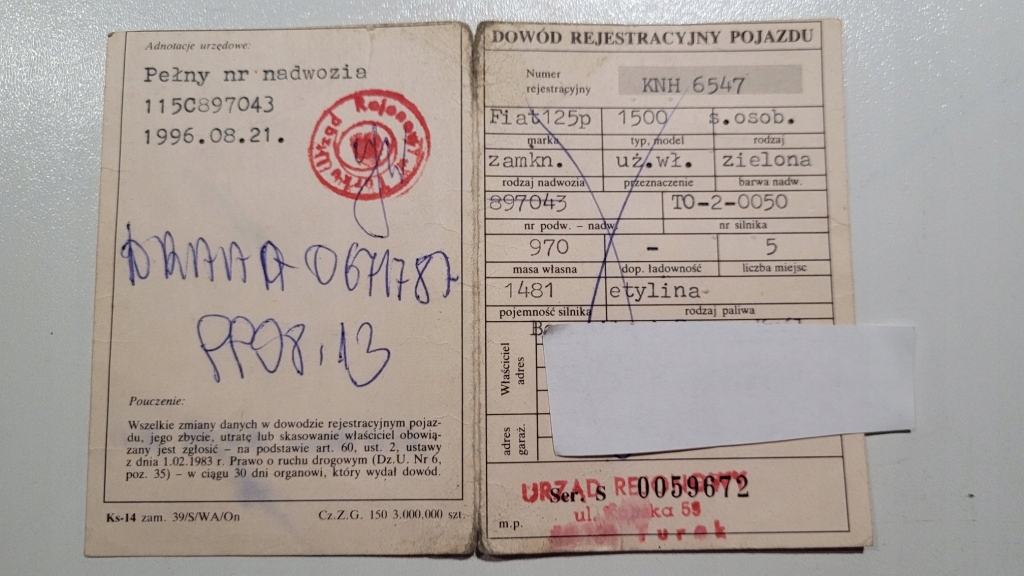 Adnotacje urzędowe:
Pełny nr nadwozia
115C897043
1996.08.21.
Urząd Rejonowy
0671787
PP08.13
Pouczenie:
Wszelkie zmiany danych w dowodzie rejestracyjnym pojaz-
du, jego zbycie, utratę lub skasowanie właściciel obowią-
zany jest zgłosić – na podstawie art. 60, ust. 2, ustawy
z dnia 1.02.1983 r. Prawo o ruchu drogowym (Dz.U. Nr 6,
poz. 35) – w ciągu 30 dni organowi, który wydał dowód.
Ks-14 zam. 39/S/WA/On Cz.Z.G. 150 3.000.000 szt.
DOWÓD REJESTRACYJNY POJAZDU
Numer
rejestracyjny KNH 6547
Fiat125p 1500 s.osob.
marka typ, model rodzaj
zamkn. uż.wł. zielona
rodzaj nadwozia przeznaczenie barwa nadw.
897043 TO-2-0050
nr podw. – nadw. nr silnika
970 – 5
masa własna dop. ładowność liczba miejsc
1481 etylina
pojemność silnika rodzaj paliwa
Właściciel
adres
adres
garaż.
URZĄD REJONOWY
Ser. S 0059672
ul. 59
m.p. Turek